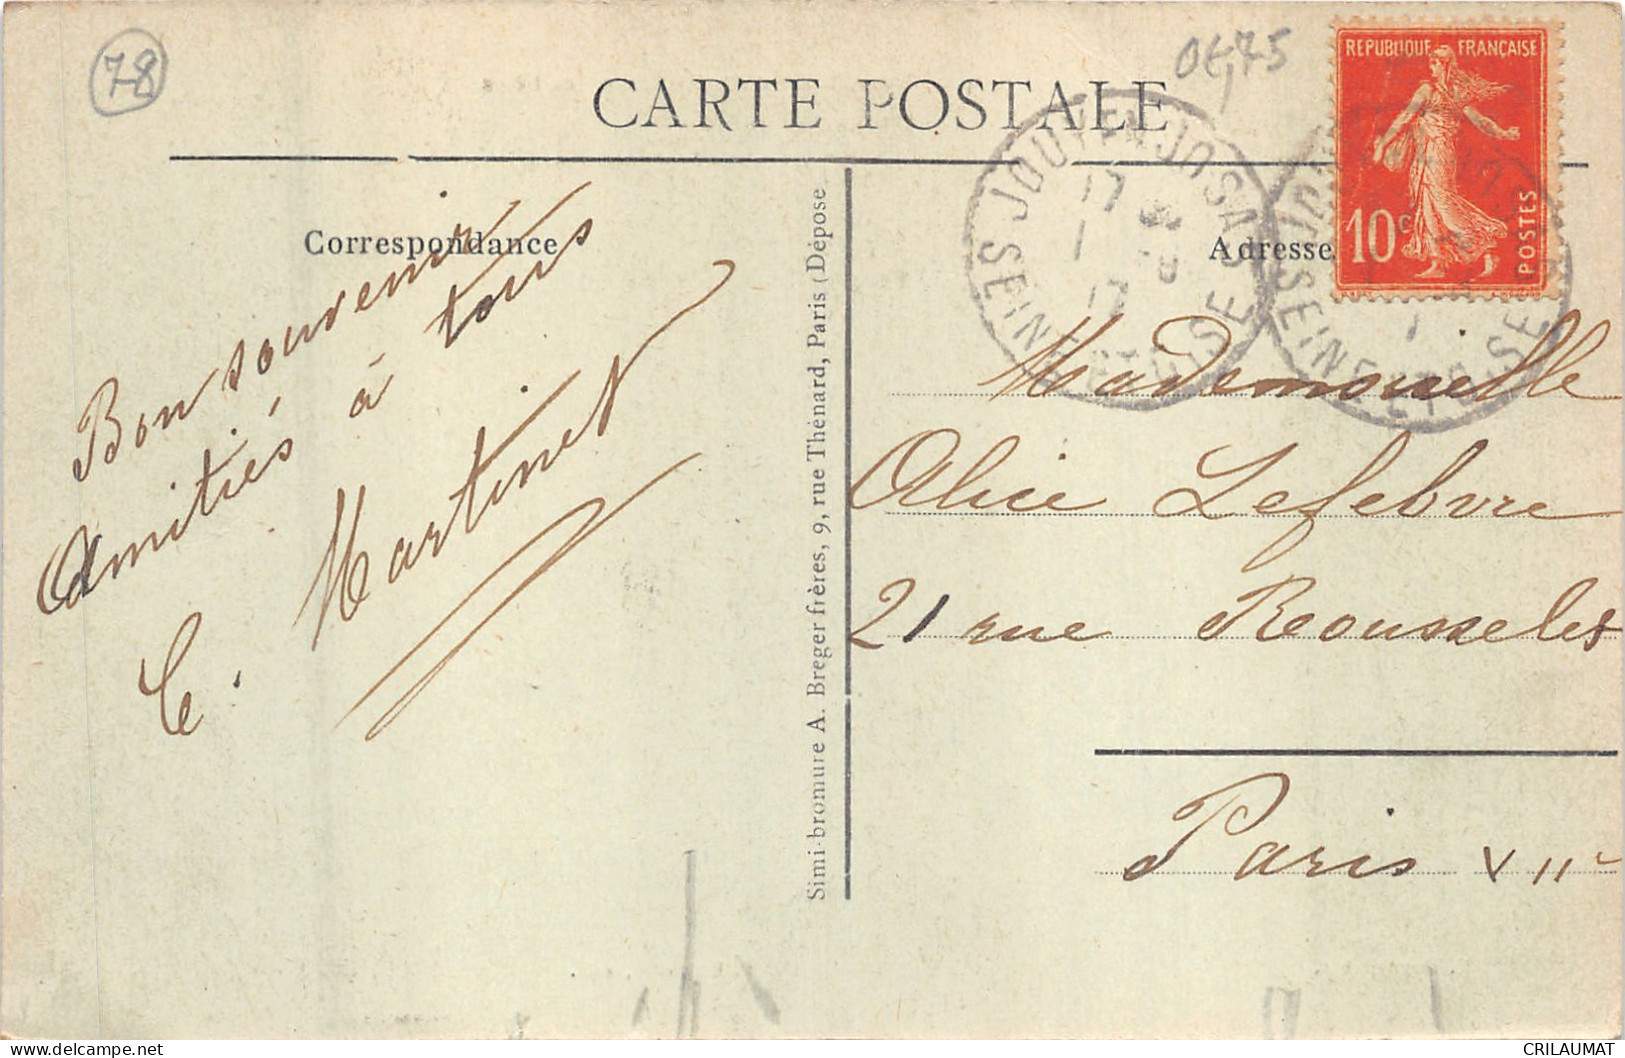 78
0€,75
CARTE POSTALE
RÉPUBLIQUE FRANÇAISE
10c
POSTES
JOUY EN JOSAS
17
1
17
SEINE ET OISE
JOUY
SEINE ET OISE
Correspondance
Adresse
Bon souvenir
Amitiés à tous
C. Martinet
Simi-bromure A. Breger frères, 9, rue Thénard, Paris (Déposé
Mademoiselle
Alice Lefebvre
21 rue Rousselet
Paris VIIe
CRILAUMAT